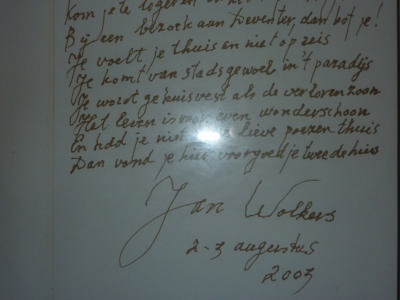 Kom je te logeren
Bij een bezoek aan Deventer, dan bof je!
Je voelt je thuis en niet op reis
Je komt van stadsgewoel in 't paradijs
Je wordt gehuisvest als de verloren zoon
Het leven is even wonderschoon
En had je niet lieve poezen thuis
Dan vond je hier voorgoed je tweede huis
Jan Wolkers
2-3 augustus
2003